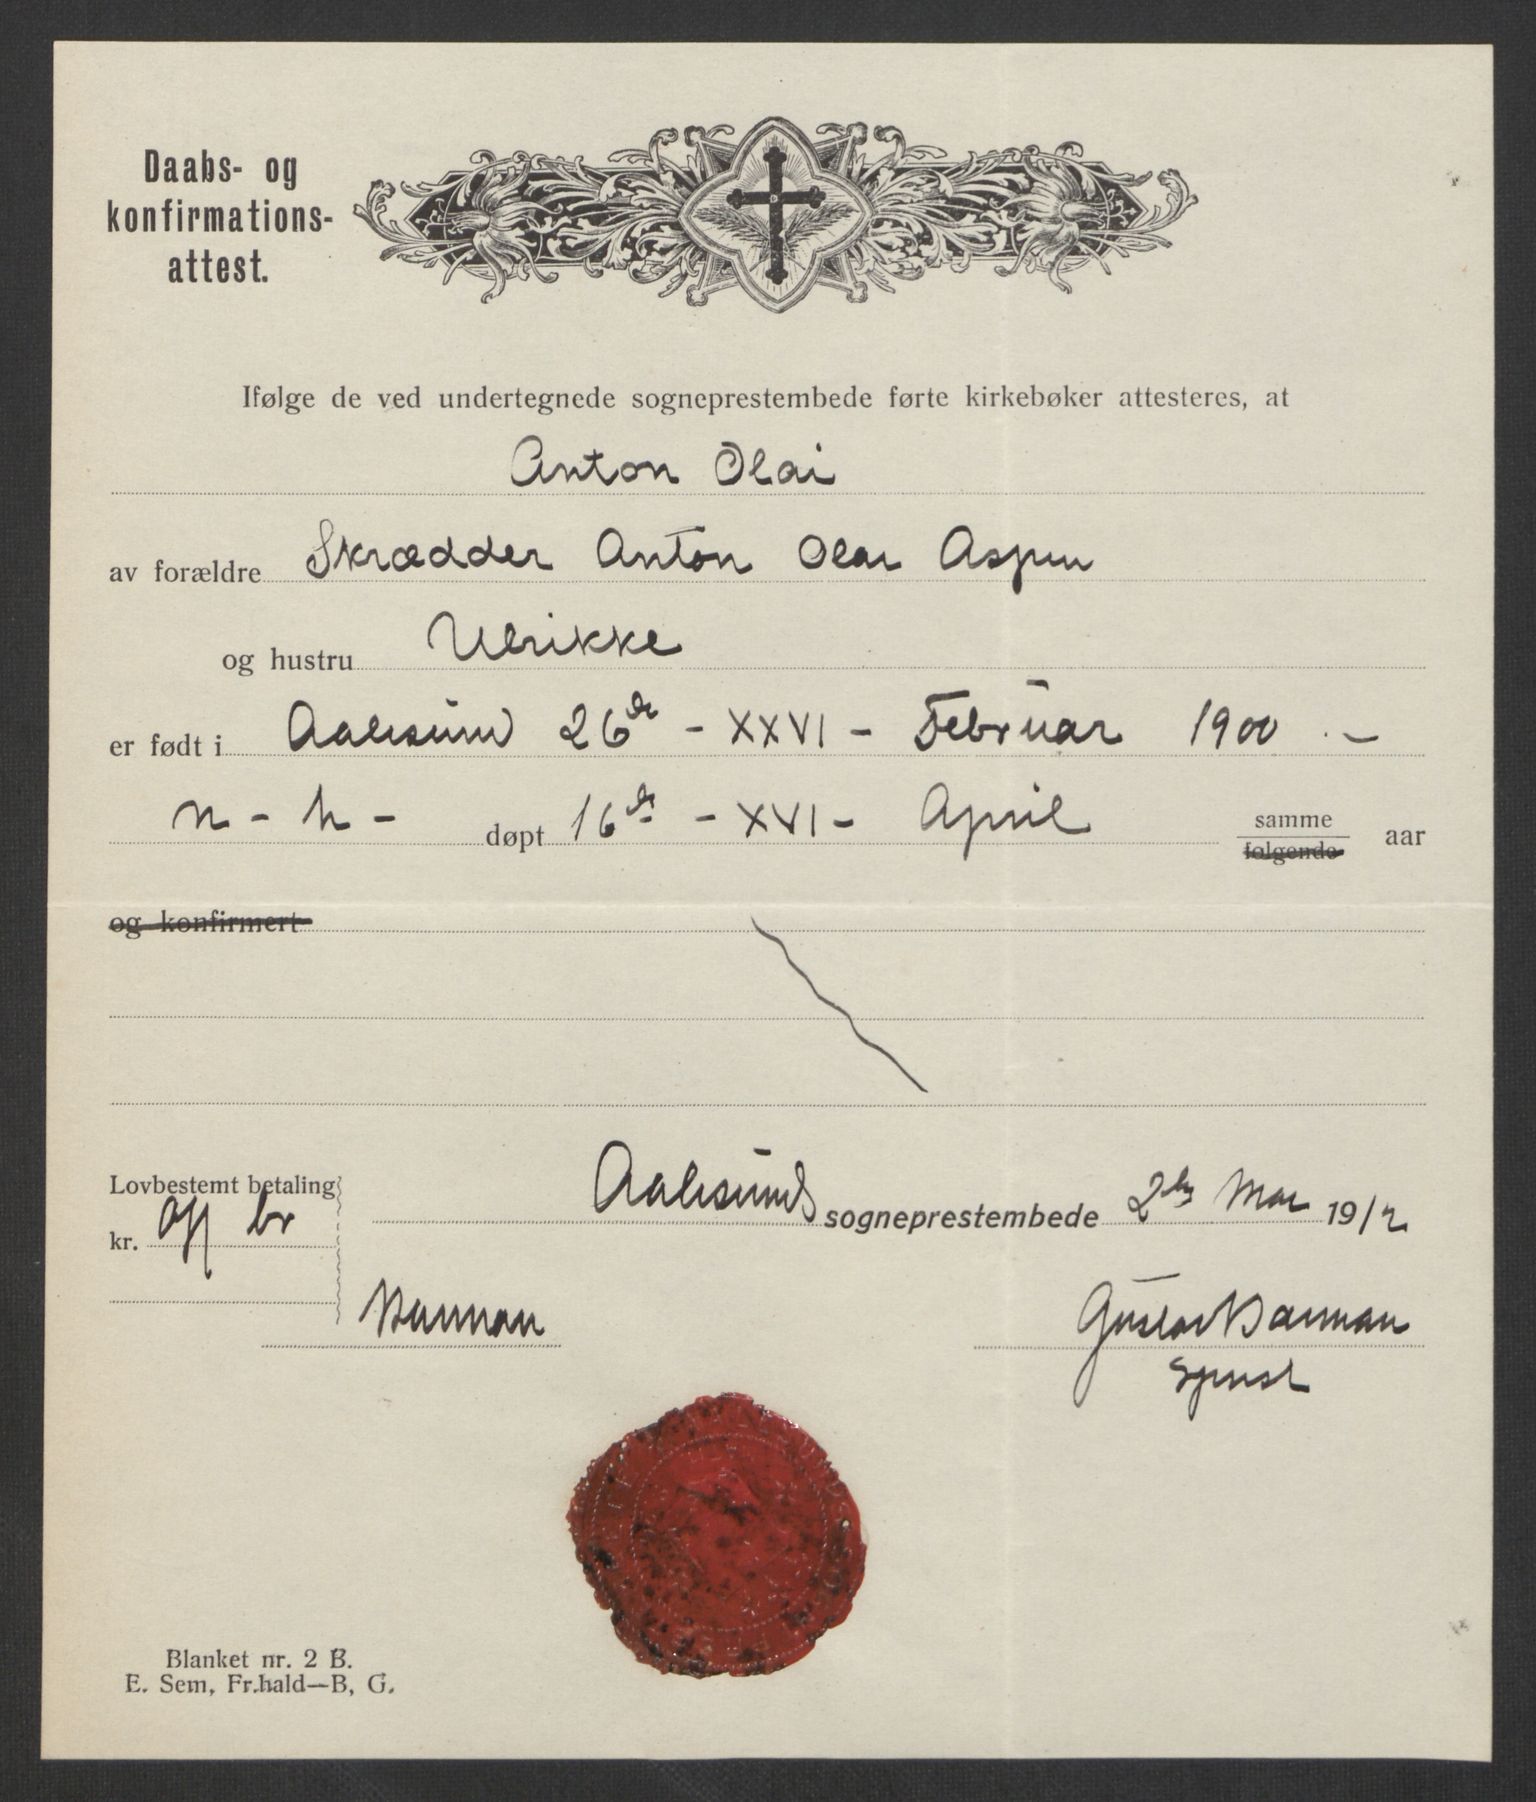 Daabs- og
konfirmations-
attest.
Ifølge de ved undertegnede sogneprestembede førte kirkebøker attesteres, at
Anton Olai
av forældre Skrædder Anton Olai Aspen
og hustru Ulrikke
er født i Aalesund 26de - XXVI - Februar 1900 . -
n - h - døpt 16de - XVI - April samme aar
følgende
og konfirmert
Lovbestemt betaling
kr. off br
Aalesunds sogneprestembede 2den Mai 1912
Barman
Gustav Barman
sprest
Blanket nr. 2 B.
E. Sem, Fr.hald—B, G.